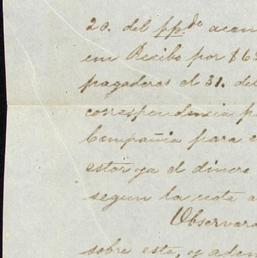 20. del pp.do acom
un Recibo por $63
pagaderos el 31. de
correspondencia p
Compañia para e
estar ya el dinero
segun la nota a
Observara
sobre esta, y adem